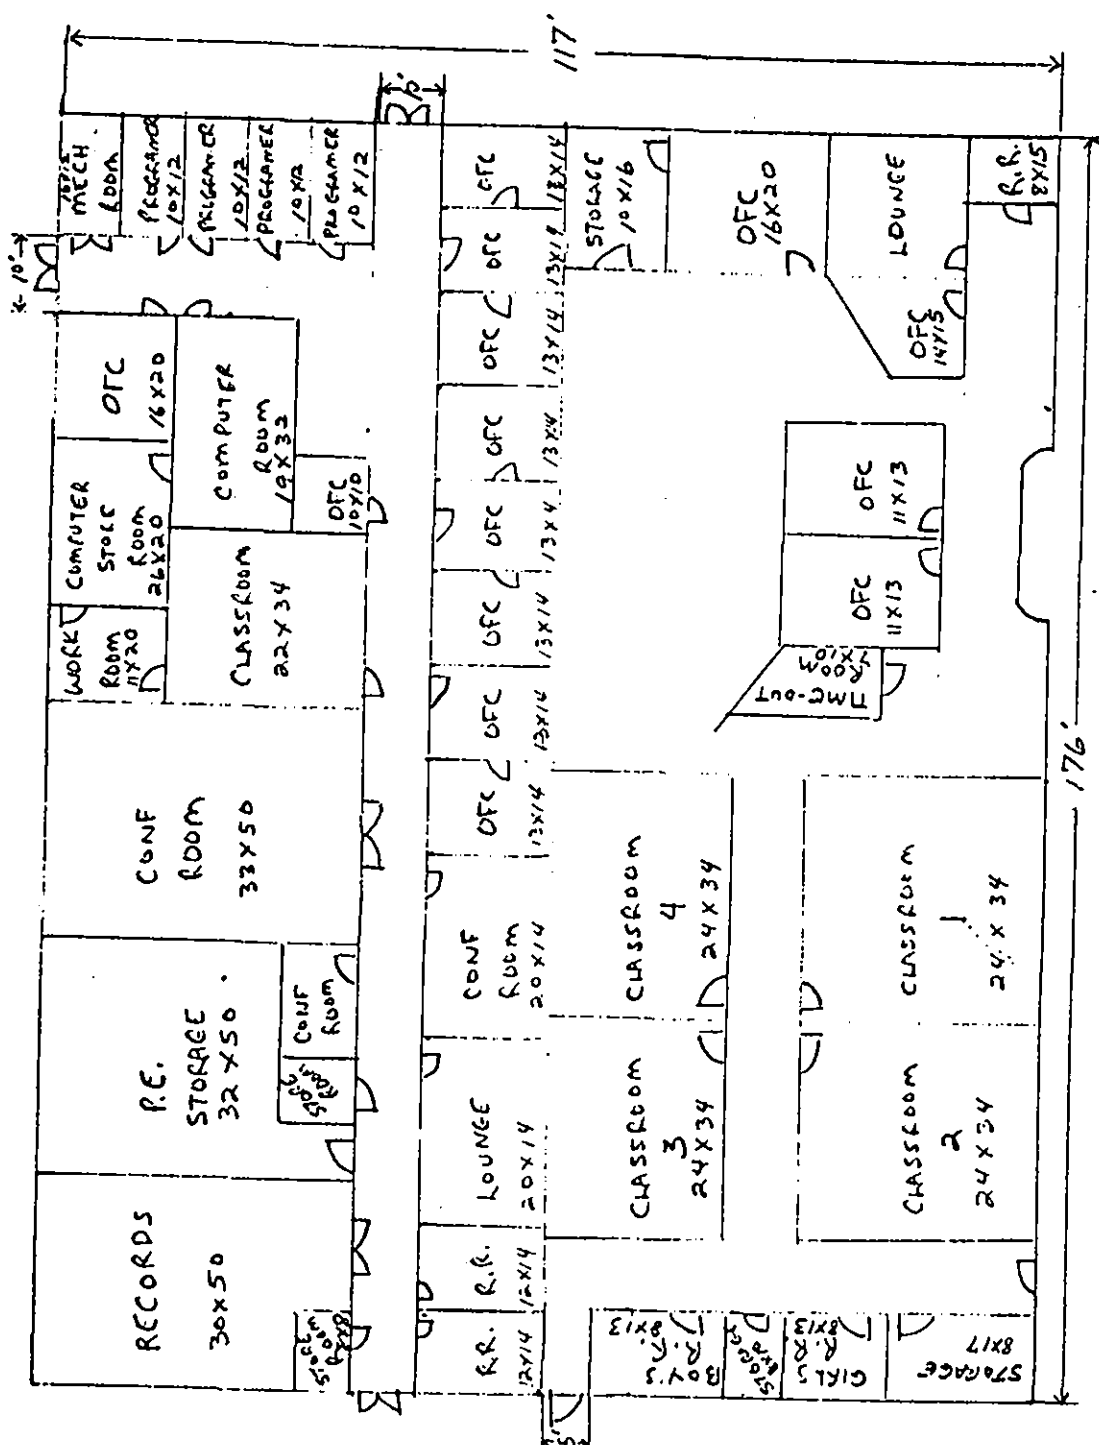 117'
10'
10x12
MECH
ROOM
PROGRAMER
10X12
PROGRAMER
10X12
PROGRAMER
10X12
PROGRAMER
10X12
OFC
16X20
COMPUTER
ROOM
19X32
OFC
10X10
COMPUTER
STORE
ROOM
26X20
WORK
ROOM
11X20
CLASSROOM
22X34
CONF
ROOM
33X50
P.E.
STORAGE
32X50
CONF
ROOM
ROOM
RECORDS
30X50
ROOM
OFC
13X14
OFC
13X14
OFC
13X14
OFC
13X14
OFC
13X14
OFC
13X14
OFC
13X14
OFC
13X14
CONF
ROOM
20X14
LOUNGE
20X14
R.R.
12X14
R.R.
12X14
STORAGE
10X16
OFC
16X20
LOUNGE
R.R.
8X15
OFC
14X15
OFC
11X13
OFC
11X13
TIME-OUT
ROOM
7X10
CLASSROOM
4
24X34
CLASSROOM
1
24X34
CLASSROOM
3
24X34
CLASSROOM
2
24X34
BOY'S
R.R.
8X13
STORAGE
GIRLS
R.R.
8X13
STORAGE
8X17
176'